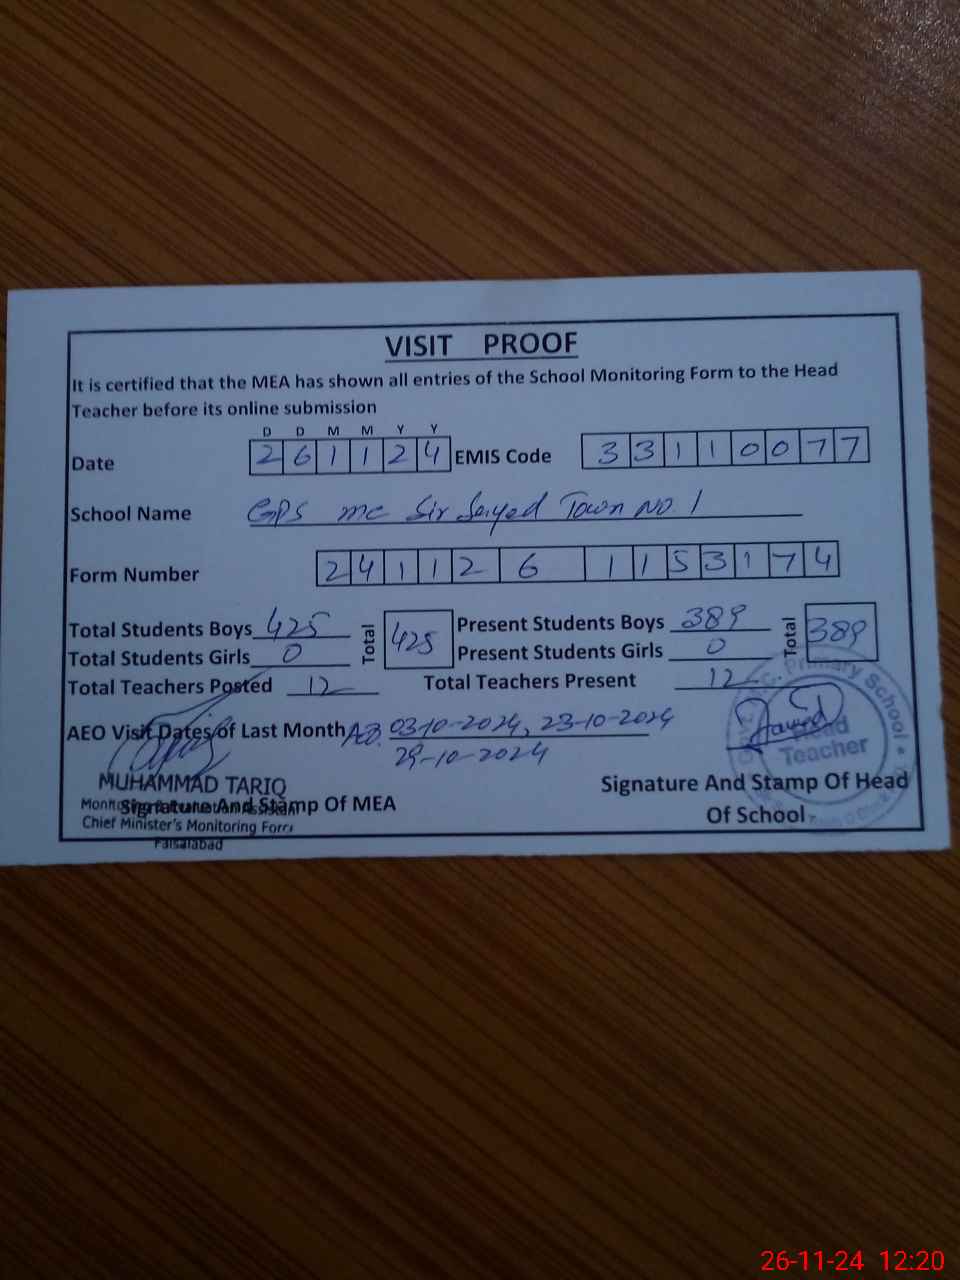 VISIT PROOF
It is certified that the MEA has shown all entries of the School Monitoring Form to the Head
Teacher before its online submission
D D M M Y Y
Date 2 6 1 1 2 4 EMIS Code 3 3 1 1 0 0 7 7
School Name GPS MC Sir Seyed Town No. 1
Form Number 2 4 1 1 2 6 1 1 5 3 1 7 4
Total Students Boys 425 Total 425 Present Students Boys 389 Total 389
Total Students Girls 0 Present Students Girls 0
Total Teachers Posted 12 Total Teachers Present 12
AEO Visit Dates of Last Month 03-10-2024, 23-10-2024
29-10-2024
Primary School
Head
Teacher
MUHAMMAD TARIQ
Signature And Stamp Of MEA
Chief Minister's Monitoring Force
Faisalabad
Signature And Stamp Of Head
Of School
26-11-24 12:20